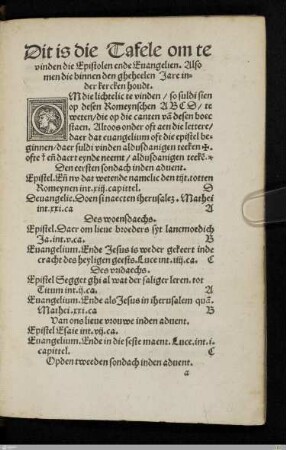 Dit is die Tafele om te
vinden die Epistolen ende Euangelien. Also
men die binnen den gheheelen Jare in
der kercken houdt.
OMdie lichtelic te vinden / so suldi sien
op desen Romeynschen A B C D / te
weten / die op die canten vā desen boec
staen. Alroos onder oft aen die lettere /
daer dat euangelium oft die epistel be
ginnen / daer suldi vinden aldusdanigen teekē ✠.
ofte ē m̄ daert eynde neemt / aldusdanigen teekē. *
Den eersten sondach inden aduent.
Epistel. Eñ nv dat wetende namelic den tijt. totten
Romeynen int. xiij. capittel. D
Deuangelie. Doen si naecten iherusalez. Mathei
int. xxi. ca A
Des woensdaechs.
Epistel. Daer om lieue broeders syt lancmoedich
Ja. int. v. ca. B
Euangelium. Ende Jesus is weder gekeert inde
cracht des heyligen geests. Luce int. iiij. ca. C
Des vridaechs.
Epistel Segget ghi al wat der saliger leren. tot
Titum int. ij. ca A
Euangelium. Ende als Jesus in iherusalem quā.
Mathei. xxi. ca B
Van ons lieue vrouwe inden aduent.
Epistel Esaie int. vij. ca.
Euangelium. Ende in die seste maent. Luce. int. i.
capittel. C
Opden tweeden sondach inden aduent.
a